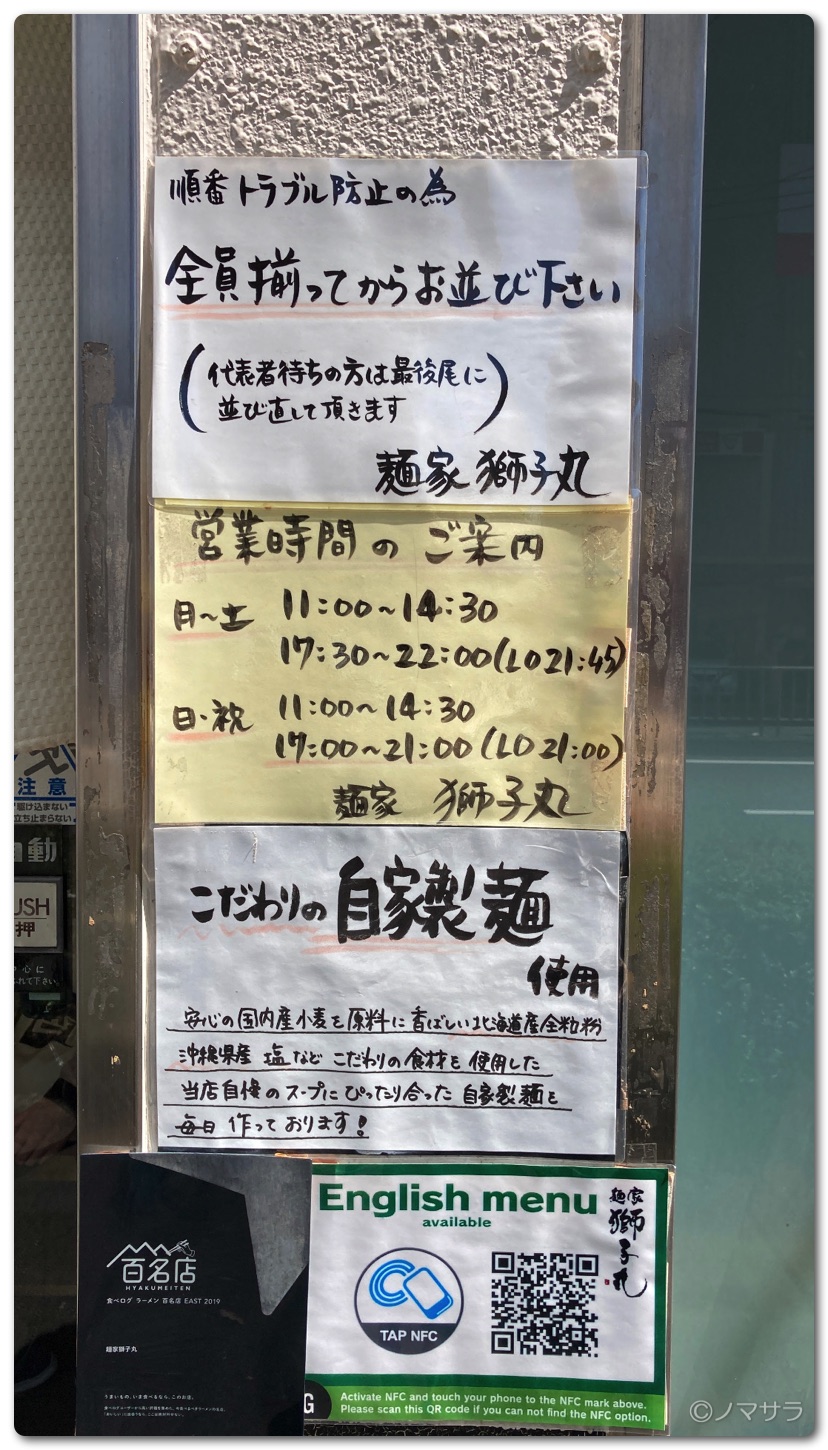 順番トラブル防止の為
全員揃ってからお並び下さい
(代表者待ちの方は最後尾に
並び直して頂きます)
麺家 獅子丸
営業時間の ご案内
月~土 11:00~14:30
17:30~22:00(LO21:45)
日・祝 11:00~14:30
17:00~21:00(LO21:00)
麺家 獅子丸
こだわりの 自家製麺
使用
安心の国内産小麦を原料に香ばしい北海道産全粒粉
沖縄県産 塩など こだわりの食材を 使用した
当店自慢のスープにぴったり合った 自家製麺を
毎日 作っております!
注意
駆け込まない
立ち止まらない
動
USH
押
百名店
HYAKUMEITEN
食べログ ラーメン 百名店 EAST 2019
麺家獅子丸
うまいもの、いま食べるなら、このお店。
English menu
available
麺家
獅子丸
TAP NFC
G
Activate NFC and touch your phone to the NFC mark above.
Please scan this QR code if you can not find the NFC option.
©ノマサラ